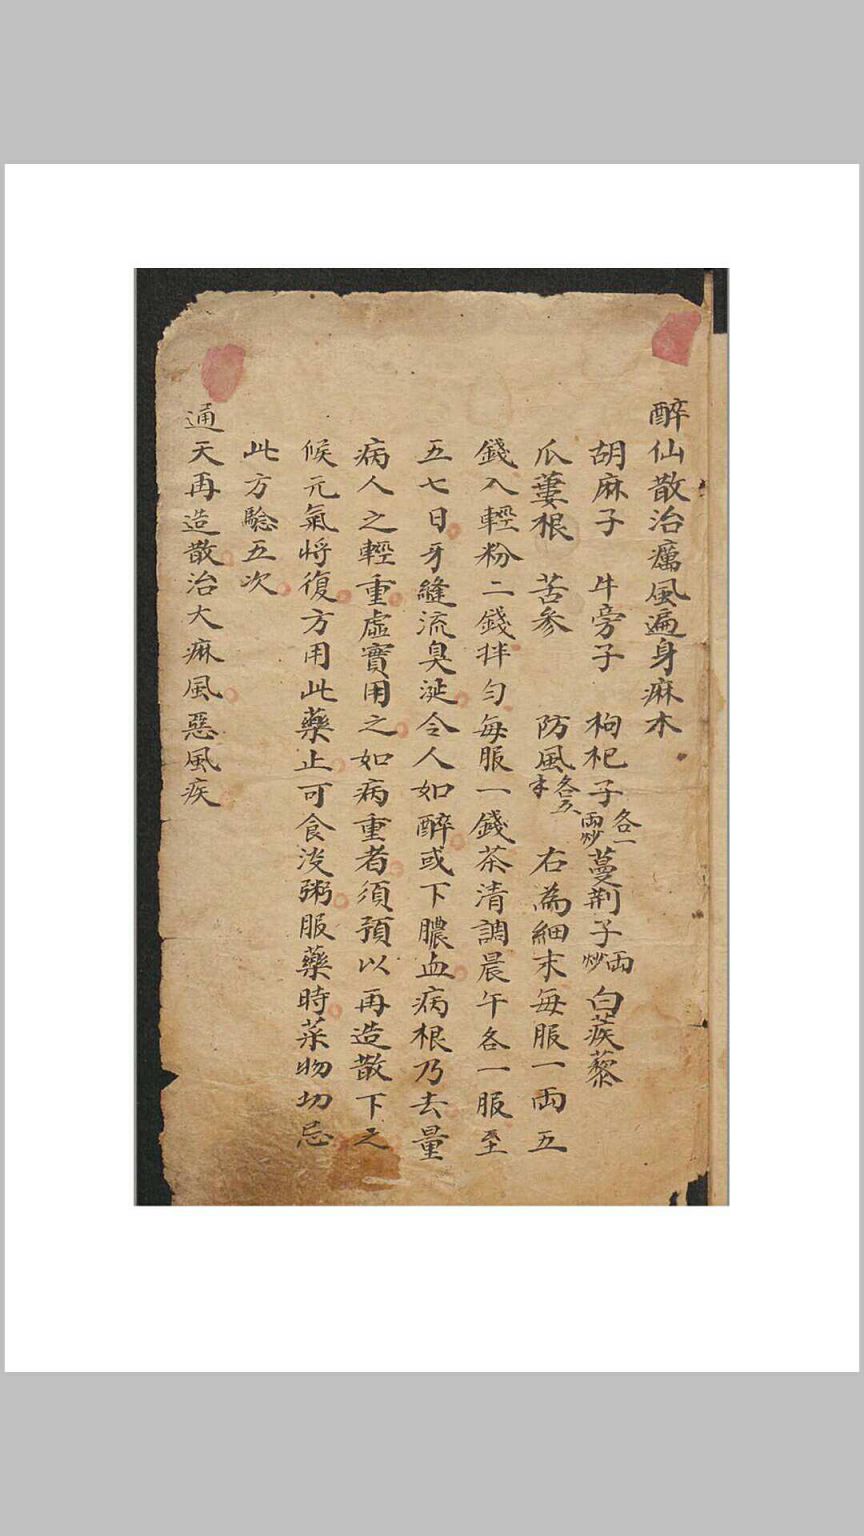 醉仙散治癘風遍身麻木
胡麻子 牛旁子 枸杞子各一兩炒 蔓荆子兩炒 白蒺藜
瓜蔞根 苦參 防風各五 右為細末每服一兩五
錢入輕粉二錢拌勻每服一錢茶清調晨午各一服至
五七日牙縫流臭涎令人如醉或下膿血病根乃去量
病人之輕重虛實用之如病重者須預以再造散下之
候元氣將復方用此藥止可食淡粥服藥時菜物切忌
此方驗五次
通天再造散治大麻風惡風疾